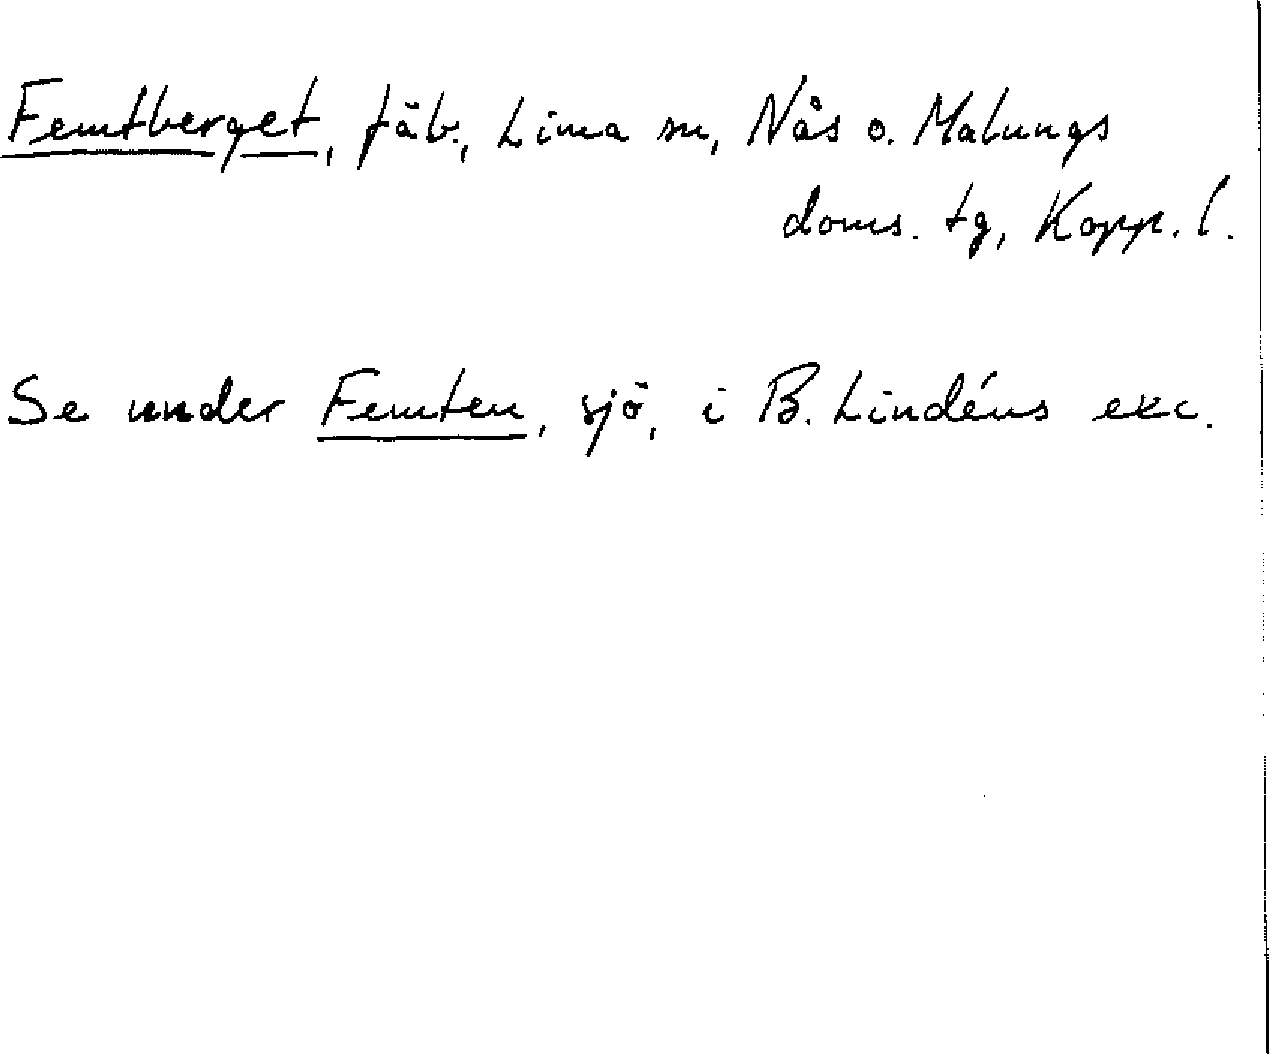 Femtberget, fäb., Lima sn, Nås o. Malungs
doms. tg, Kopp. l.
Se under Femten, sjö, i B. Lindéns exc.